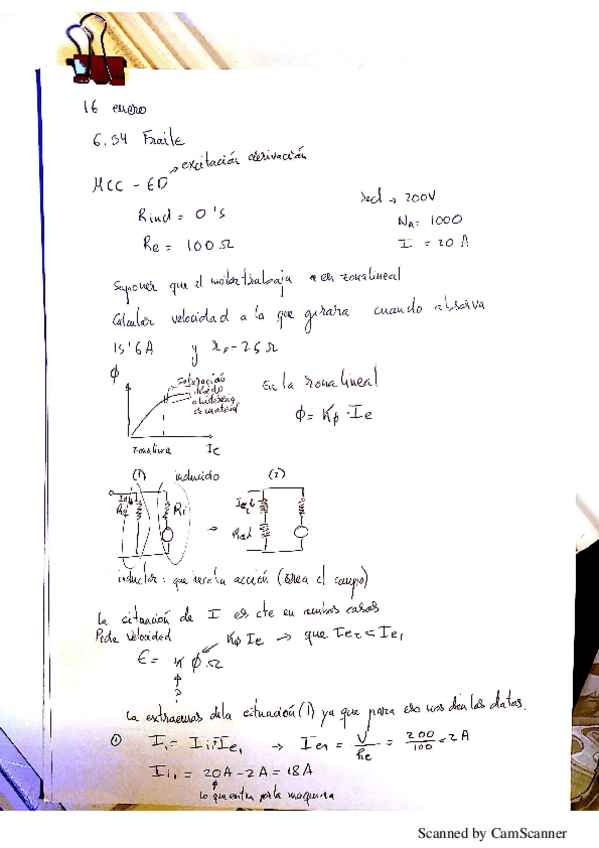 16 enero
6.34 Fraile
MCC - ED → excitación derivación
Rind = 0'5
Re = 100 Ω
red → 200V
NA = 1000
I = 20 A
Suponer que el motor trabaja en zona lineal
Calcular velocidad a la que girara cuando absorva
15'6A y
Φ
Saturación
zona lineal
Ie
En la zona lineal
Φ = Kφ · Ie
(1) inducido (2)
Ri
inductor: que acción (crea el campo)
la situación de I es cte en ambos casos
Pide velocidad
Kφ Ie → que Ie2 < Ie1
E = K φ · Ω
?
la extraemos de la situación (1) ya que para eso nos dan los datos.
① I1 = Ii1 + Ie1 → Ie1 = V/Re = 200/100 = 2A
Ii1 = 20A - 2A = 18A
lo que entra por la maquina
Scanned by CamScanner